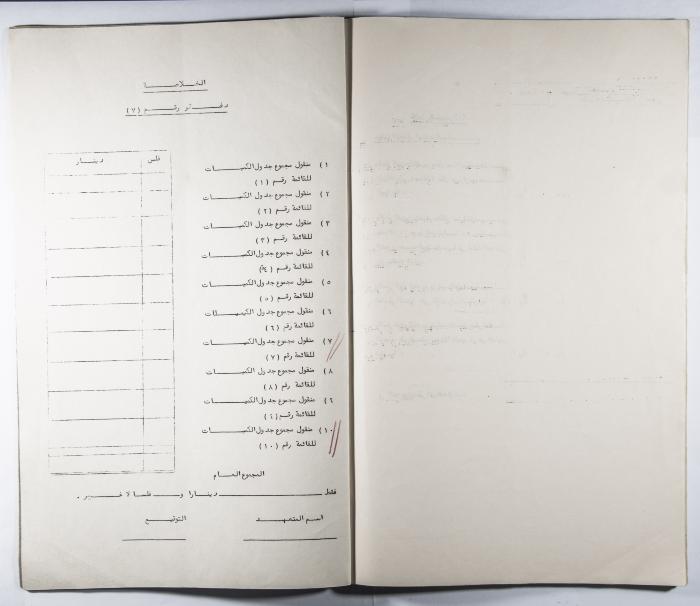 الخلاصة
دفتر رقم (٧)
فلس دينار
١) منقول مجموع جدول الكميات
للقائمة رقم (١)
٢) منقول مجموع جدول الكميات
للقائمة رقم (٢)
٣) منقول مجموع جدول الكميات
للقائمة رقم (٣)
٤) منقول مجموع جدول الكميات
للقائمة رقم (٤)
٥) منقول مجموع جدول الكميات
للقائمة رقم (٥)
٦) منقول مجموع جدول الكميات
للقائمة رقم (٦)
٧) منقول مجموع جدول الكميات
للقائمة رقم (٧)
٨) منقول مجموع جدول الكميات
للقائمة رقم (٨)
٩) منقول مجموع جدول الكميات
للقائمة رقم (٩)
١٠) منقول مجموع جدول الكميات
للقائمة رقم (١٠)
المجموع العام
فقط دينارا و فلسا لا غير .
اسم المتعهد التوقيع